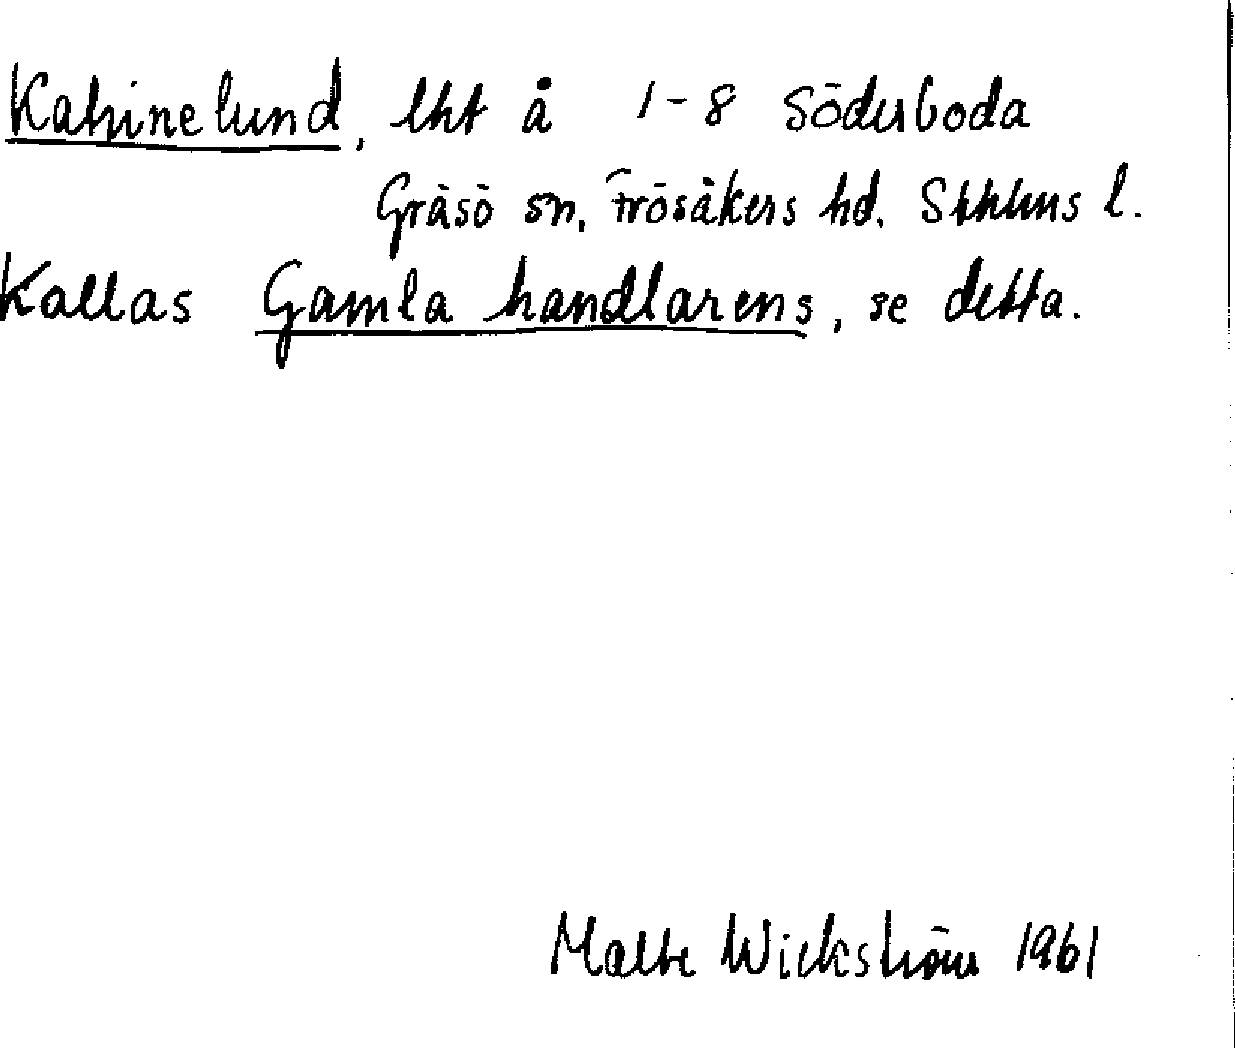 Katrinelund, lht å 1-8 Söderboda
Gräsö sn, Frösåkers hd. Sthlms l.
Kallas Gamla handlarens, se detta.
Malte Wickström 1961